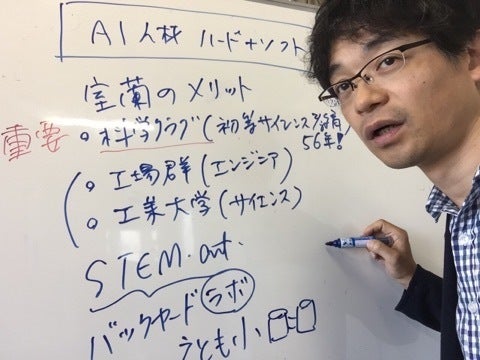 AI人材 ハード+ソフト
室蘭のメリット
重要 ○科学クラブ(初等サイエンス
56年!
○工場群(エンジニア)
○工業大学(サイエンス)
STEM・art.
バックヤード ラボ